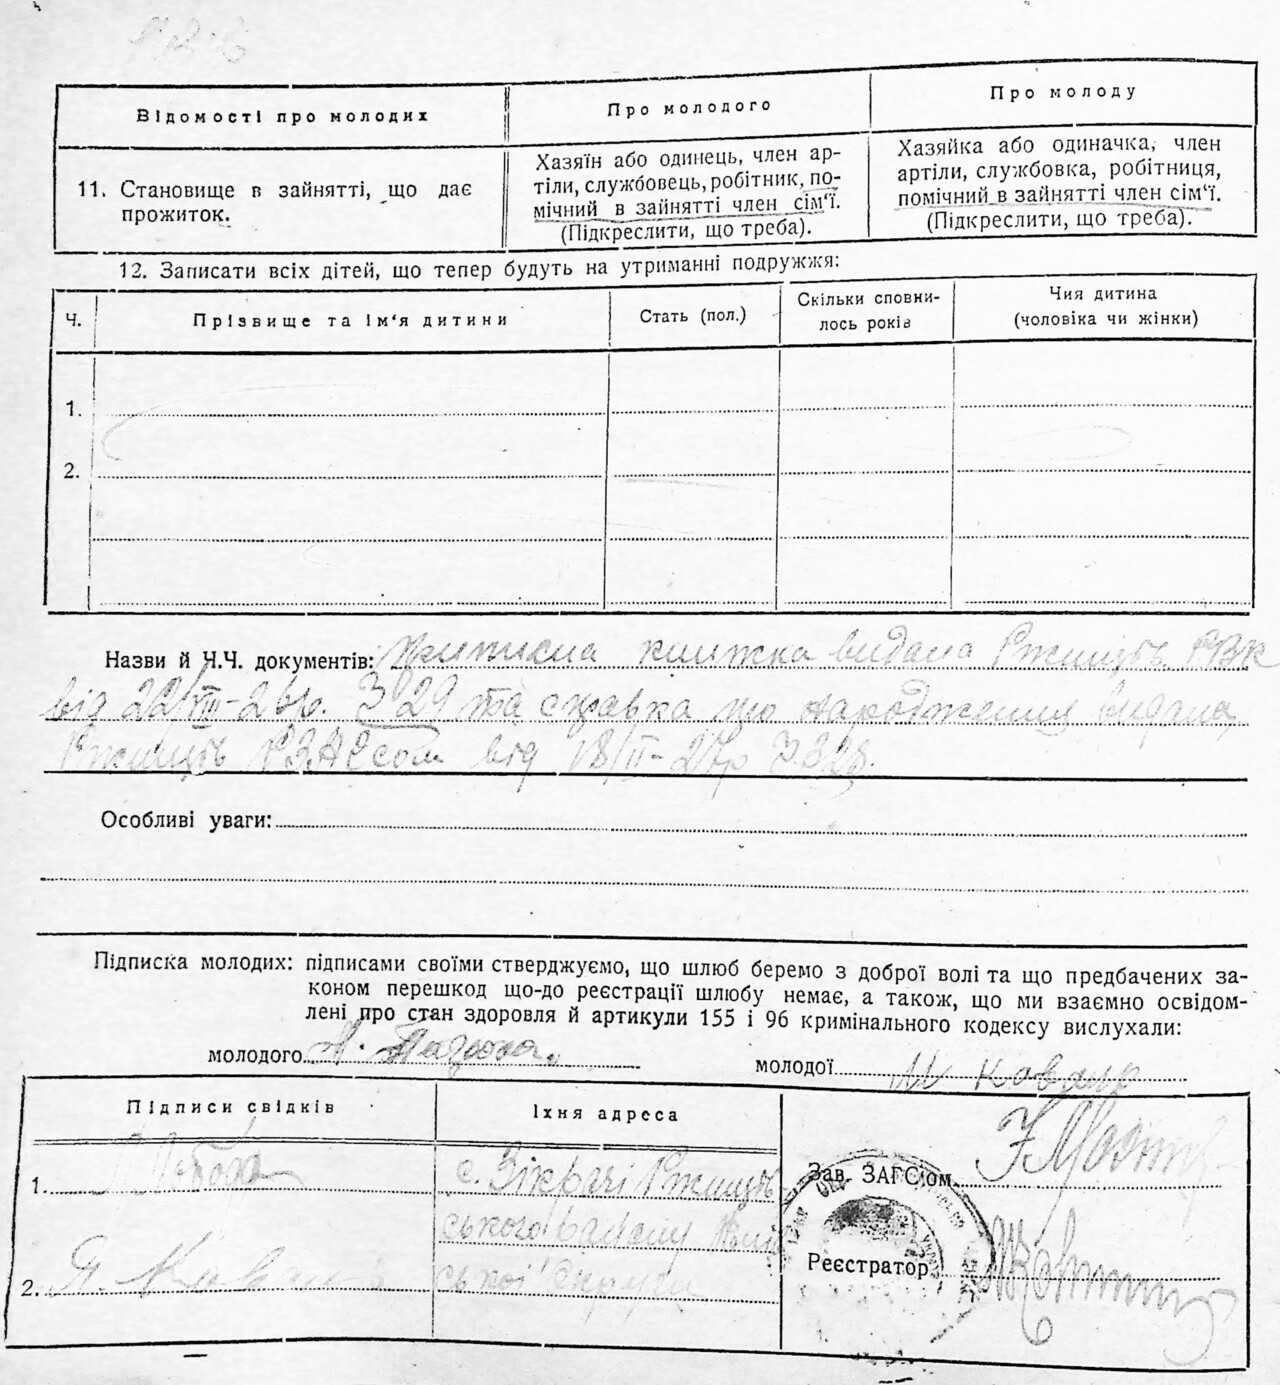 Відомості про молодих
Про молодого
Про молоду
11. Становище в зайнятті, що дає
прожиток.
Хазяїн або одинець, член ар-
тіли, службовець, робітник, по-
мічний в зайнятті член сім‘ї.
(Підкреслити, що треба).
Хазяйка або одиначка, член
артіли, службовка, робітниця,
помічний в зайнятті член сім‘ї.
(Підкреслити, що треба).
12. Записати всіх дітей, що тепер будуть на утриманні подружжя:
Ч.
Прізвище та ім‘я дитини
Стать (пол.)
Скільки сповни-
лось років
Чия дитина
(чоловіка чи жінки)
1.
2.
Назви й Ч.Ч. документів: книжка видана Ржищів. РВК
від 22/VIII-26р. З 29 та справка про находження видана
Ржищів РЗАГСом від 18/II-27р З 328.
Особливі уваги:
Підписка молодих: підписами своїми стверджуємо, що шлюб беремо з доброї волі та що предбачених за-
коном перешкод що-до реєстрації шлюбу немає, а також, що ми взаємно освідом-
лені про стан здоровля й артикули 155 і 96 кримінального кодексу вислухали:
молодого
молодої М Коваль
Підписи свідків
Їхня адреса
1. с. Зікрачі Ржищів
ського району
2. Я. ської округи
Зав. ЗАГС‘ом
Реєстратор